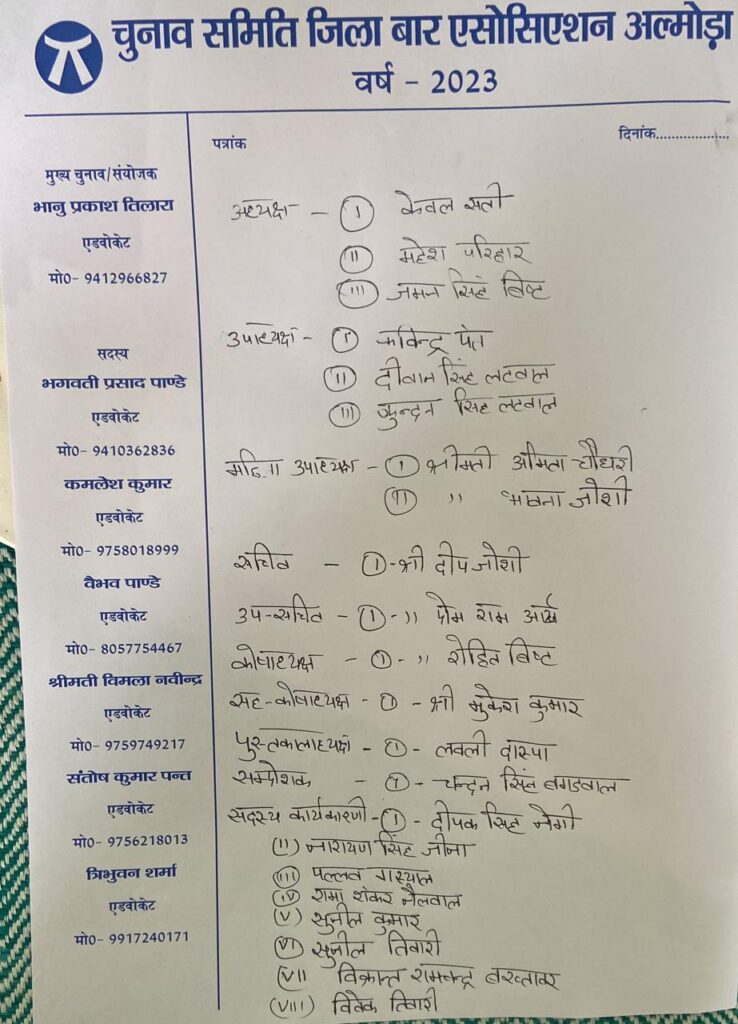 चुनाव समिति जिला बार एसोसिएशन अल्मोड़ा
वर्ष - 2023
पत्रांक
दिनांक....................
मुख्य चुनाव/संयोजक
भानु प्रकाश तिलारा
एडवोकेट
मो0- 9412966827
सदस्य
भगवती प्रसाद पाण्डे
एडवोकेट
मो0- 9410362836
कमलेश कुमार
एडवोकेट
मो0- 9758018999
वैभव पाण्डे
एडवोकेट
मो0- 8057754467
श्रीमती विमला नवीन्द्र
एडवोकेट
मो0- 9759749217
संतोष कुमार पन्त
एडवोकेट
मो0- 9756218013
त्रिभुवन शर्मा
एडवोकेट
मो0- 9917240171
अध्यक्ष - (I) केवल सती
(II) महेश परिहार
(III) जमन सिंह बिष्ट
उपाध्यक्ष - (I) कविन्द्र पंत
(II) दीवान सिंह लटवाल
(III) कुन्दन सिंह लटवाल
उपाध्यक्ष - (I) श्रीमती चौधरी
(II) " भावना जोशी
सचिव - (1) - श्री दीप जोशी
उप-सचिव - (1) - " प्रेम राम आर्य
कोषाध्यक्ष - (1) - " रोहित बिष्ट
सह-कोषाध्यक्ष - (1) - श्री मुकेश कुमार
पुस्तकालाध्यक्ष - (1) - लवली दास्पा
- (1) - चन्दन सिंह बगडवाल
सदस्य कार्यकारणी - (1) - दीपक सिंह नेगी
(II) नारायण सिंह जीना
(III) पल्लव
(IV) रामा शंकर नैलवाल
(V) सुनील कुमार
(VI) सुनील तिवारी
(VII) विक्रान्त रामचन्द्र बख्तावर
(VIII) विवेक तिवारी